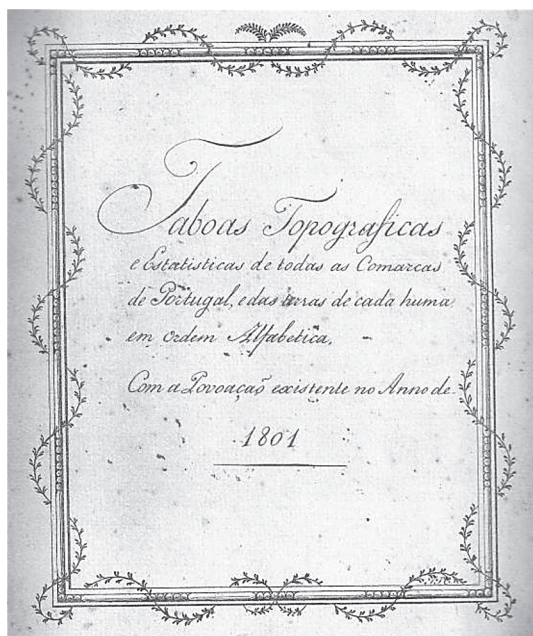 Taboas Topograficas
e Estatisticas de todas as Comarcas
de Portugal, e das terras de cada huma
em ordem Alfabetica.
Com a Povoação existente no Anno de
1801